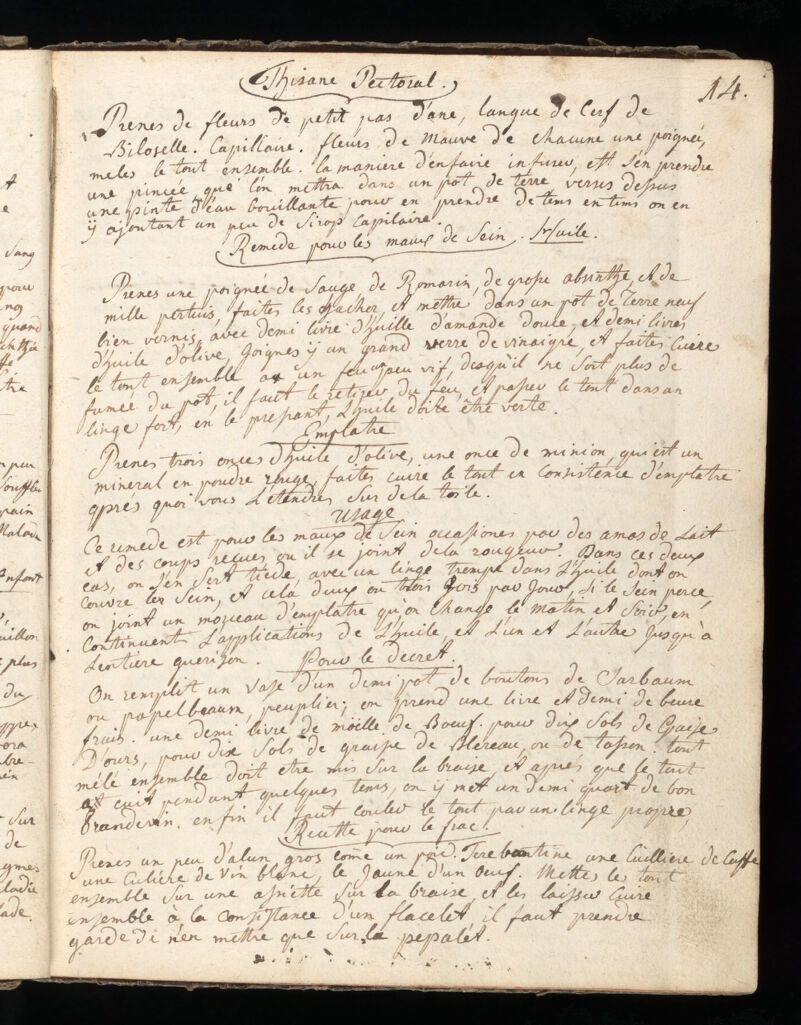 Thisane Pectoral.
14.
Prenes de fleurs de petit pas d'ane, langue de Cerf de
Piloselle. Capillaire. fleurs de Mauve de chacune une poignée,
meles le tout ensemble. la maniere d'en faire infuser, et s'en prendre
une pincée que l'on mettra dans un pot de terre verses dessus
une pinte d'eau bouillante pour en prendre de tems en tems on en
ÿ ajoutant un peu de Sirop Capilaire.
Remede pour les maux de Sein. huile.
Prenes une poignée de Sauge de Romarin, de grosse absinthe, et de
mille pertuis, faites les hacher, et mettre dans un pot de terre neuf
bien vernis, avec demi livre d'Huille d'amande douce, et demi livres
d'Huile d'olive, Joignes ÿ un grand verre de vinaigre, et faites Cuire
le tout ensemble a un feu un peu vif, desqu'il ne Sort plus de
fumée du pot, il faut le retirer du feu, et passer le tout dans un
linge fort, en le pressant, L'Huile doibt être verte.
Emplatre
Prenes trois onces d'Huile d'olive, une once de minion, qui est un
mineral en poudre rouge, faites cuire le tout en Consistence d'emplatre
après quoi vous L'étendres Sur de la toile.
Usage
Ce remede est pour les maux de Sein occasiones par des amas de Lait
et des coups recues ou il se joint de la rougeur. Dans ces deux
cas, on S'en Sert tiede, avec un linge trempe dans L'Huile dont on
couvre les Sein, et cela deux ou trois fois par Jour, Si le Sein perce,
on joint un morceau d'emplatre qu'on Change le matin et Soir, en
Continuent L'applications de L'Huile, et L'un et L'autre Jusqu'à
L'entiere guerison. Pour le decret.
On remplit un Vase d'un demi pot de boutons de Sarbaum
ou papelbeaum, peuplier; on prend une livre et Demi de beure
frais. une demi livre de möelle de Bœuf. pour dix Sols de Graise
D'ours, pour dix Sols de graisse de Blereau, ou de tasson. tout
mélé ensemble doit etre mis Sur la braise, et après que le tout
at cuit pendant quelques tems, on ÿ met un demi quart de bon
Brandevin. en fin il faut couler le tout par un linge propre,
Recette pour le frac.
Prenes un peu d'alun gros come un poid. Terebantine une Cuilliere de Caffe
une Culiére de Vin blanc, le Jaune d'un oeuf. Mettes le tout
ensemble Sur une assiette Sur la braise, et les laisser Cuire
ensemble à la Consistance d'un flacelet, il faut prendre
garde di n'en mettre que Sur la pepalét.